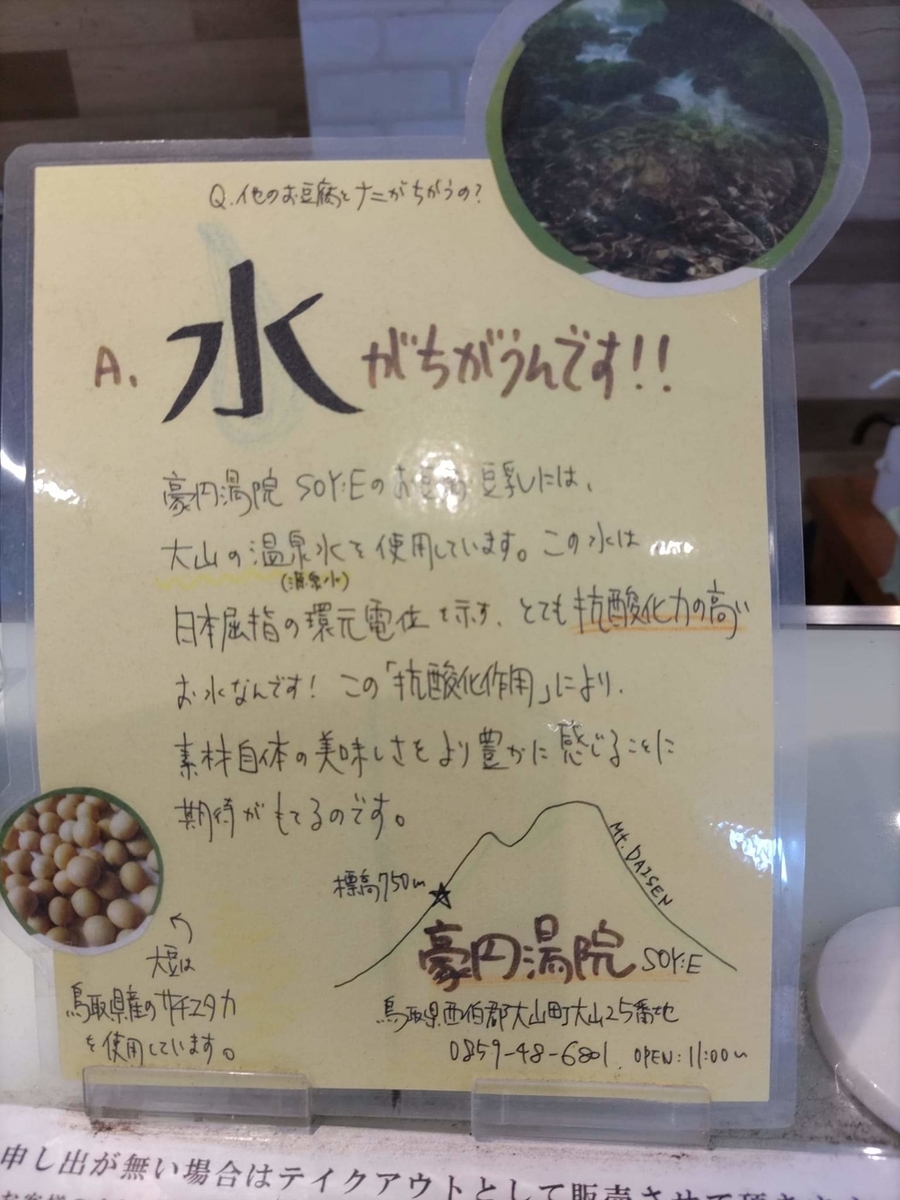 Q.他のお豆腐とナニがちがうの?
A. 水がちがうんです!!
豪円湯院 SOY:Eのお豆腐豆乳には、
大山の温泉水を使用しています。この水は
(源泉水)
日本屈指の還元電位を示す、とても抗酸化力の高い
お水なんです! この「抗酸化作用」により、
素材自体の美味しさをより豊かに感じることに
期待がもてるのです。
Mt. DAISEN
標高750m
豪円湯院 SOY:E
大豆は
鳥取県産のサチユタカ
を使用しています。
鳥取県西伯郡大山町大山25番地
0859-48-6801. OPEN:11:00~
申し出が無い場合はテイクアウトとして販売させて頂き